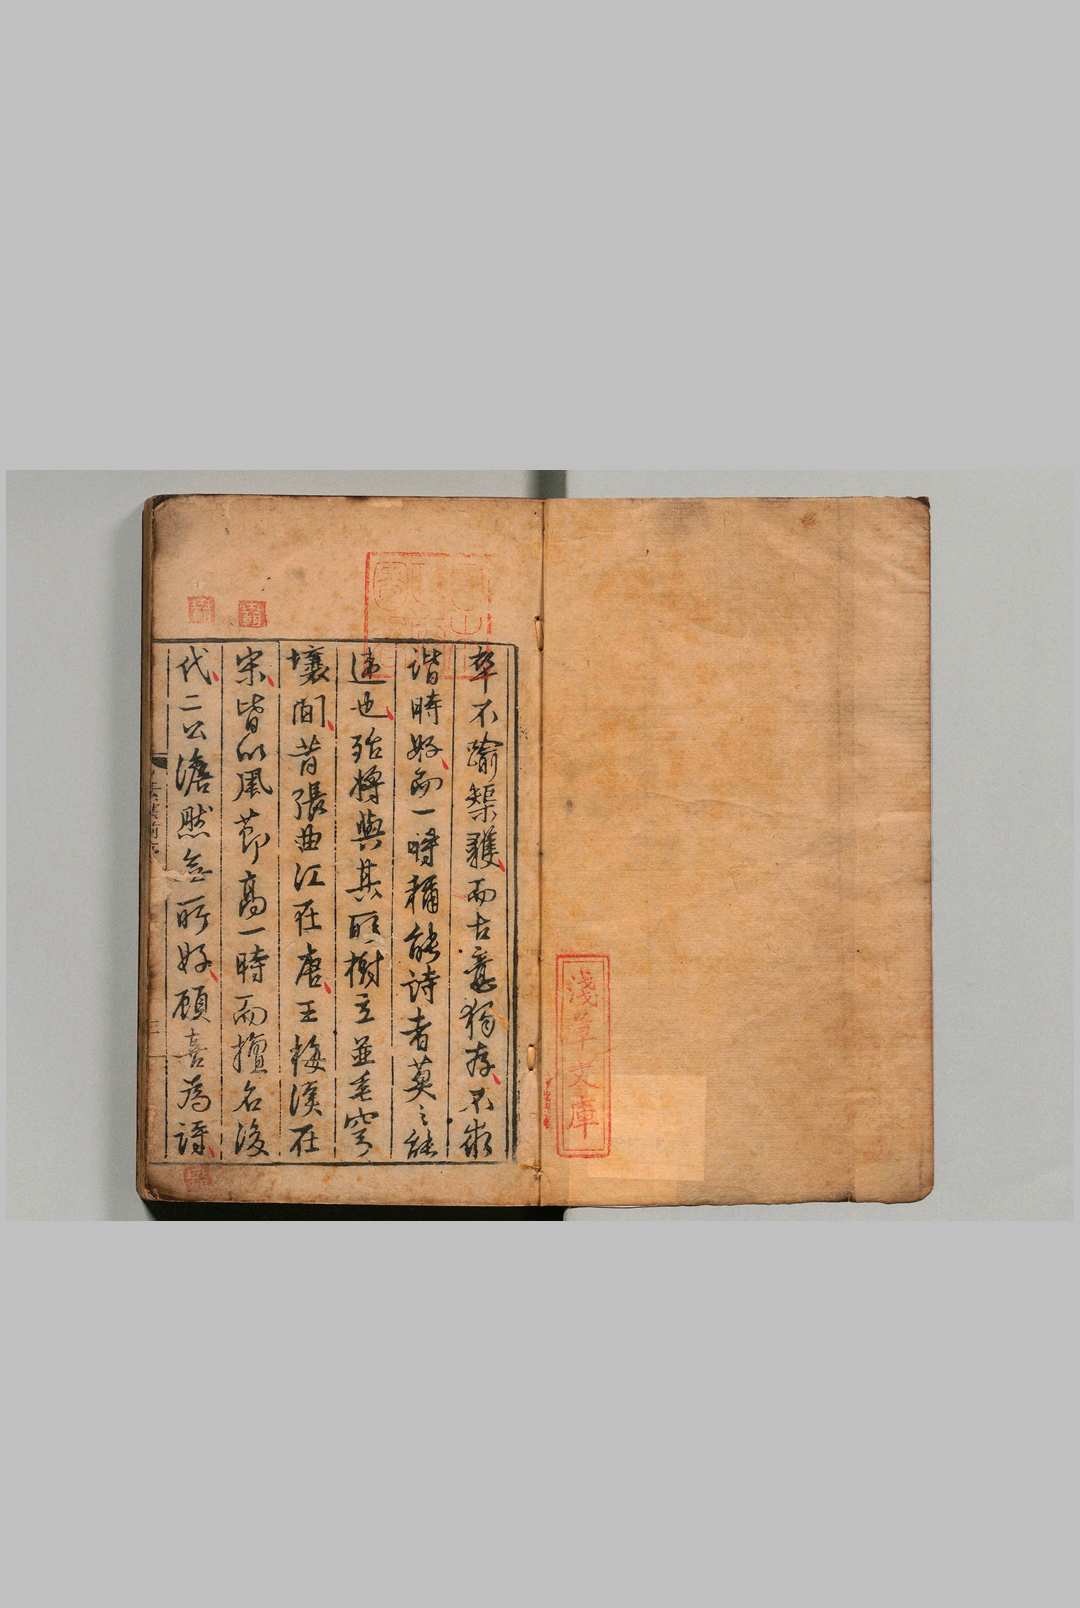 卒不踰榘矱而古意猶存不求
諧時好而一時稱能詩者莫之能
違也殆將與其所樹立並垂穹
壤間昔張曲江在唐王梅溪在
宋皆以風節高一時而擅名後
代二公澹然無所好顧喜為詩
淺草文庫